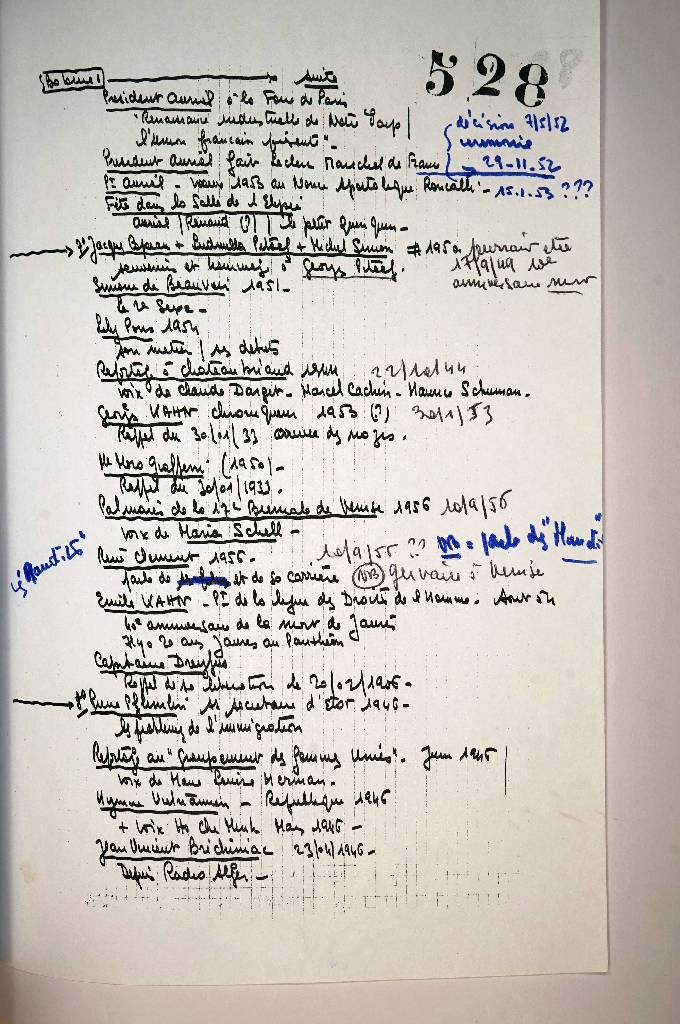 Bobine 1 → suite
528
Président Auriol à la Foire de Paris
"Renaissance industrielle de Notre Pays /
l'union française présente" -
décision 7/5/52
cérémonie
→ 29-11.52
Président Auriol fait Leclerc Maréchal de France
Pt Auriol - vœux 1953 au Nonce Apostolique Roncalli - 15.1.53 ???
Fête dans la Salle de l'Elysée
Auriol / Renaud (?) / le petit quinquin -
→ Jacques + Ludmilla Pitoëff + Michel Simon # 1950
pourrait être
17/9/49 10e
anniversaire mort
souvenirs et hommage à Georges Pitoëff.
Simone de Beauvoir 1951 -
le 2e Sexe -
Lily Pons 1954
son métier / ses débuts
Reportage à Chateaubriand 1944 22/10/44
voix de Claude - Marcel Cachin - Maurice Schuman.
Georges KAHN chroniqueur 1953 (?) 30/1/53
Rappel du 30/01/33 des nazis.
Me Moro Giafferi (1950) -
Rappel du 30/01/1933.
Palmarès de la 17e Biennale de Venise 1956 10/9/56
voix de Maria Schell -
René Clément 1956 - 10/9/56 ?? NB = parle des
parle de et de sa carrière NB Gervaise à Venise
Emile KAHN - Pt de la ligue des Droits de l'Homme. Aout 54
40e anniversaire de la mort de Jaurès
Il y a 20 ans Jaures au Panthéon
Capitaine Dreyfus
Rappel de sa 20/02/1906 -
→ Pierre Pflimlin ss secrétaire d'Etat 1946 -
les problèmes de l'immigration
Reportage au "Groupement des femmes Unies". Juin 1945
voix de Marie Louise
Hymne Vietnamien - République 1946
+ voix Ho Chi Minh Mars 1946 -
Jean Vincent 23/04/1946 -
Depuis Radio Alger -